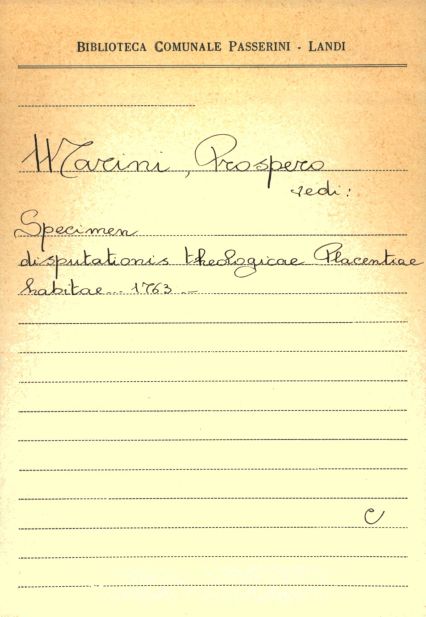 BIBLIOTECA COMUNALE PASSERINI - LANDI
Marini, Prospero
vedi:
Specimen
disputationis theologicae Placentiae
habitae... 1763 -
C